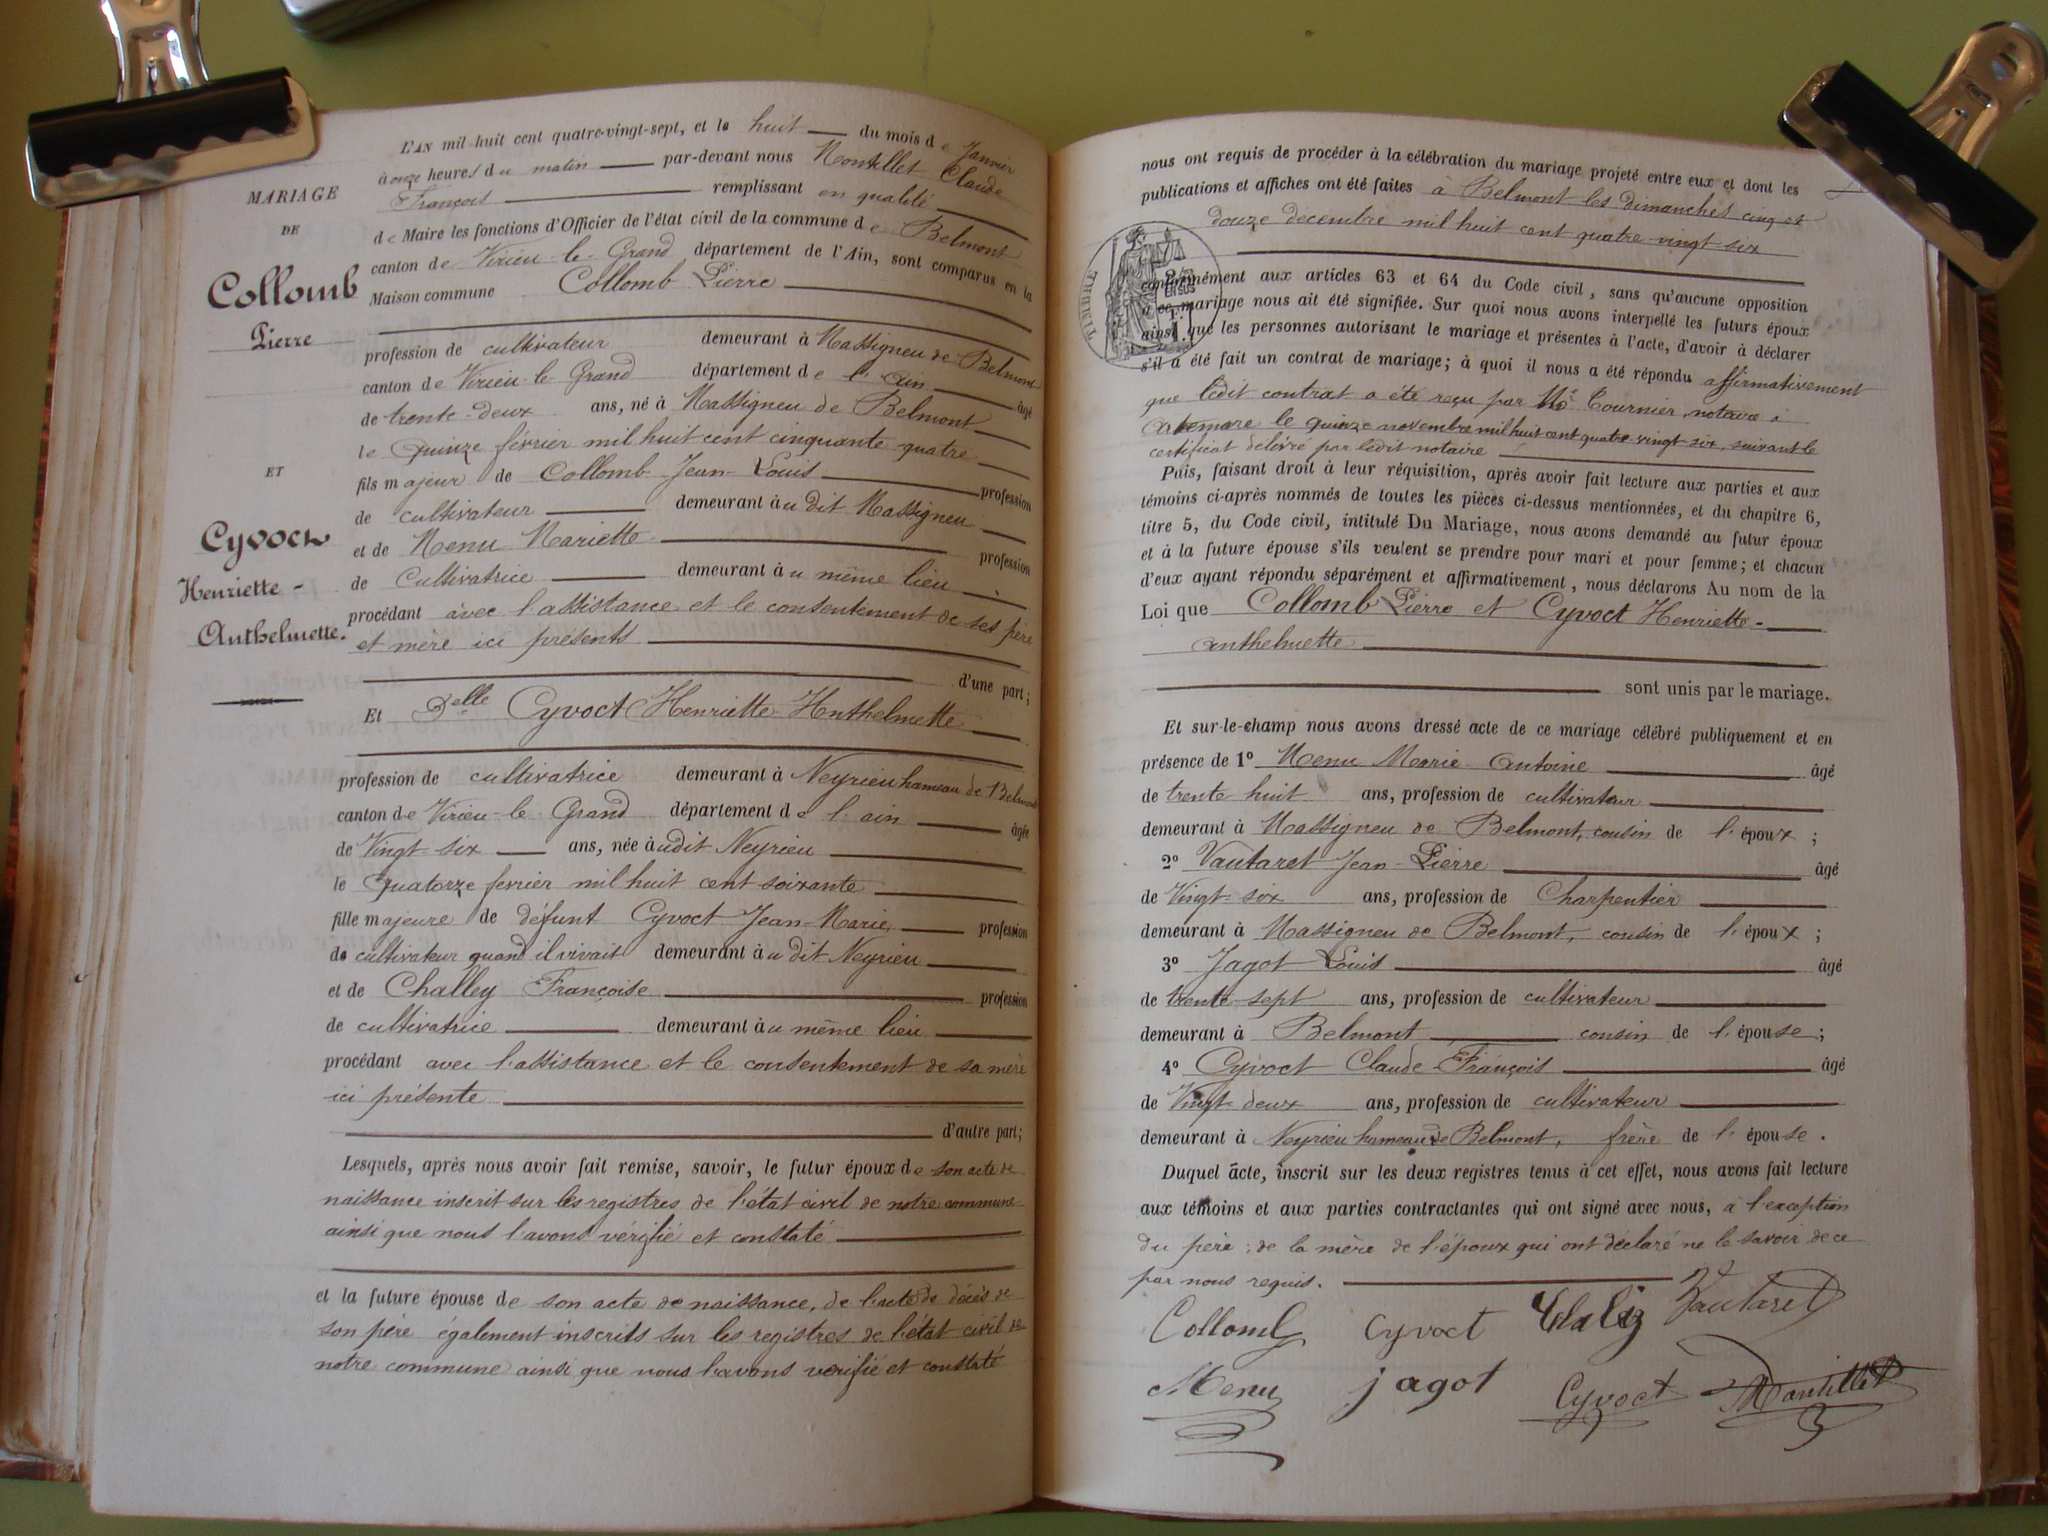 MARIAGE
DE
Collomb
Pierre
ET
Cyvoct
Henriette-
Anthelmette.
L'AN mil huit cent quatre-vingt-sept, et le huit du mois de Janvier
à onze heures du matin par-devant nous Montillet Claude
François remplissant en qualité
de Maire les fonctions d'Officier de l'état civil de la commune de Belmont
canton de Virieu-le-Grand département de l'Ain, sont comparus en la
Maison commune Collomb Pierre
profession de cultivateur demeurant à Massigneu de Belmont
canton de Virieu-le-Grand département de l'ain âgé
de trente-deux ans, né à Massigneu de Belmont
le Quinze février mil huit cent cinquante-quatre
fils majeur de Collomb Jean-Louis profession
de cultivateur demeurant àu dit Massigneu
et de Menu Mariette profession
de Cultivatrice demeurant àu même lieu
procédant avec l'assistance et le consentement de ses père
et mère ici présents
d'une part;
Et Delle Cyvoct Henriette-Anthelmette
profession de cultivatrice demeurant à Neyrieu hameau de Belmont
canton de Virieu-le-Grand département de l'ain âgée
de Vingt-six ans, née àudit Neyrieu
le Quatorze fevrier mil huit cent soixante
fille majeure de défunt Cyvoct Jean-Marie, profession
de cultivateur quand il vivait demeurant àu dit Neyrieu
et de Challey Françoise profession
de cultivatrice demeurant àu même lieu
procédant avec l'assistance et le consentement de sa mère
ici présente
d'autre part;
Lesquels, après nous avoir fait remise, savoir, le futur époux de son acte de
naissance inscrit sur les registres de l'état civil de notre commune
ainsi que nous l'avons vérifié et constaté
et la future épouse de son acte de naissance, de l'acte de décès de
son père également inscrits sur les registres de l'état civil de
notre commune ainsi que nous l'avons vérifié et constaté
nous ont requis de procéder à la célébration du mariage projeté entre eux et dont les
publications et affiches ont été faites à Belmont les dimanches cinq et
douze décembre mil huit cent quatre-vingt six
TIMBRE
EN SUS
conformément aux articles 63 et 64 du Code civil, sans qu'aucune opposition
à ce mariage nous ait été signifiée. Sur quoi nous avons interpellé les futurs époux
ainsi que les personnes autorisant le mariage et présentes à l'acte, d'avoir à déclarer
s'il a été fait un contrat de mariage; à quoi il nous a été répondu affirmativement
que ledit contrat a été reçu par Me Tournier, notaire à
Artemare le quinze novembre mil huit cent quatre-vingt-six, suivant le
certificat délivré par ledit notaire
Puis, faisant droit à leur réquisition, après avoir fait lecture aux parties et aux
témoins ci-après nommés de toutes les pièces ci-dessus mentionnées, et du chapitre 6,
titre 5, du Code civil, intitulé Du Mariage, nous avons demandé au futur époux
et à la future épouse s'ils veulent se prendre pour mari et pour femme; et chacun
d'eux ayant répondu séparément et affirmativement, nous déclarons Au nom de la
Loi que Collomb Pierre et Cyvoct Henriette-
Anthelmette
sont unis par le mariage.
Et sur-le-champ nous avons dressé acte de ce mariage célébré publiquement et en
présence de 1° Menu Marie Antoine âgé
de trente huit ans, profession de cultivateur
demeurant à Massigneu de Belmont, cousin de l'époux;
2° Vautaret Jean-Pierre âgé
de Vingt-six ans, profession de Charpentier
demeurant à Massigneu de Belmont, cousin de l'époux;
3° Jagot Louis âgé
de trente-sept ans, profession de cultivateur
demeurant à Belmont cousin de l'épouse;
4° Cyvoct Claude-François âgé
de Vingt-deux ans, profession de cultivateur
demeurant à Neyrieu hameau de Belmont, frère de l'épouse.
Duquel acte, inscrit sur les deux registres tenus à cet effet, nous avons fait lecture
aux témoins et aux parties contractantes qui ont signé avec nous, à l'exception
du père, de la mère de l'époux qui ont déclaré ne le savoir de ce
par nous requis.
Collomb Cyvoct Vautaret
Menu jagot Cyvoct Montillet